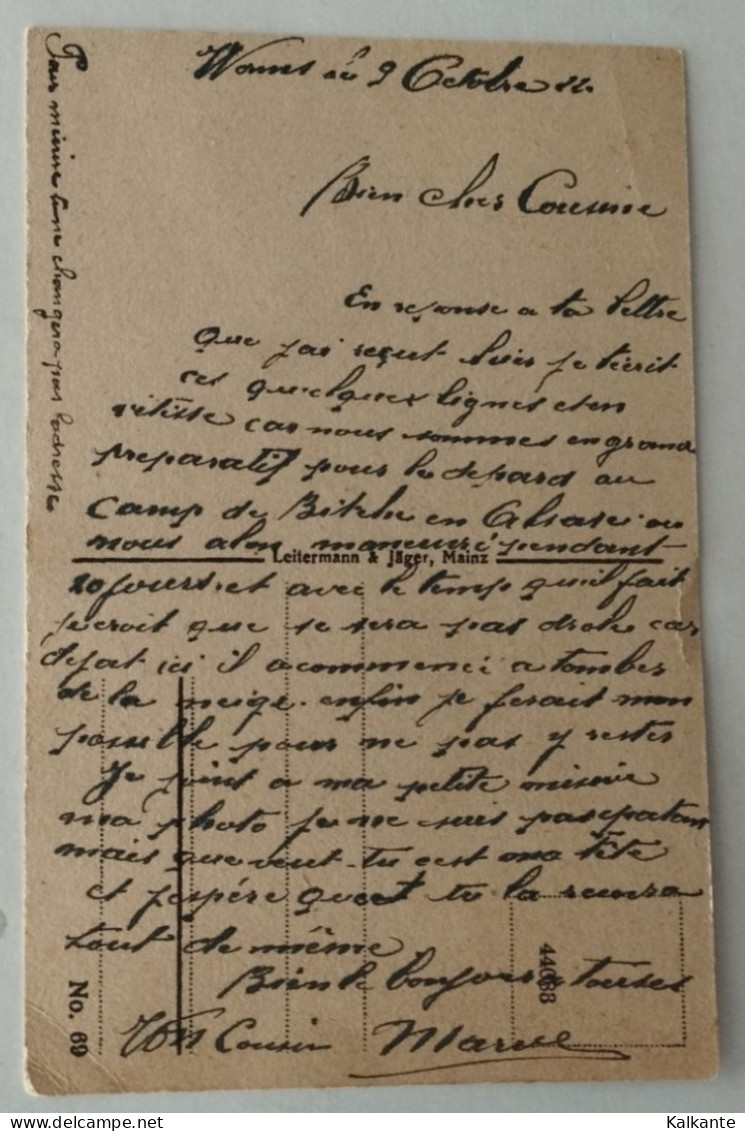 Worms le 9 Octobre
Bien cher Cousine
En reponse a ta lettre
que jai reçut hier je técrit
ces quelques lignes et en
vitisse car nous sommes en grand
preparatif pour le depard au
camp de Bitche en Alsace ou
nous alon maneuvré pendant
Leitermann & Jäger, Mainz
20 jours et avec le temp quil fait
je croit que se sera pas drole car
dejat ici il a commencé a tomber
de la neige. enfin je ferait mon
possible pour ne pas y rester
Je joint a ma petite
ma photo je ne suis pas epatan
mais que veut-tu cest ma tête
et jespére que tu la
tout de même
Bien le bonjour a
Ton Cousin Marcel
No. 69
44088
Pour changera pas ladresse
Kalkante